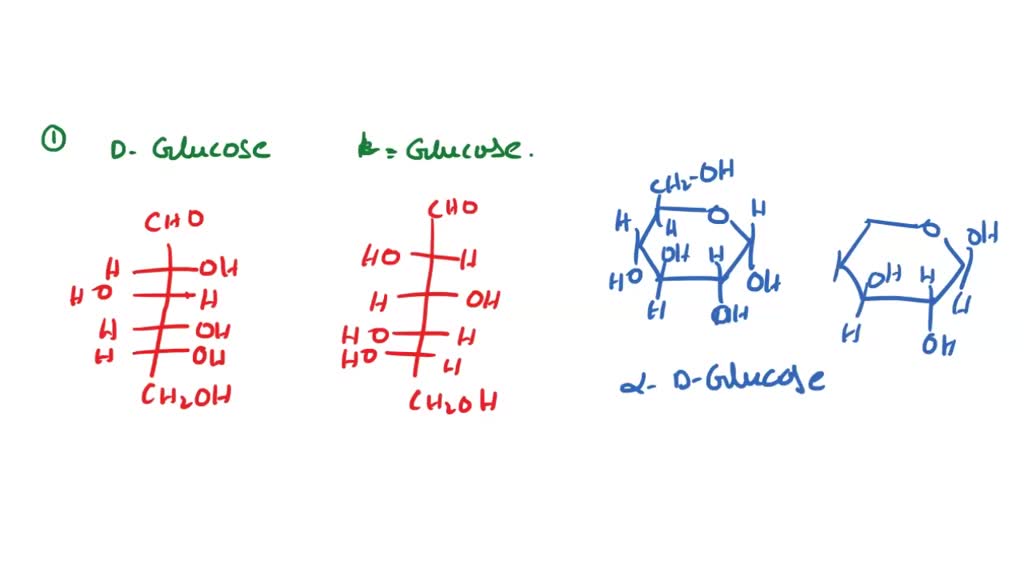 ① D- Glucose L= Glucose.
CHO
H OH
HO H
H OH
H OH
CH₂OH
CHO
HO H
H OH
HO H
HO H
CH₂OH
CH₂-OH
H O H
H
HO OH H OH
H OH
α- D-Glucose
O OH
OH H H
H OH